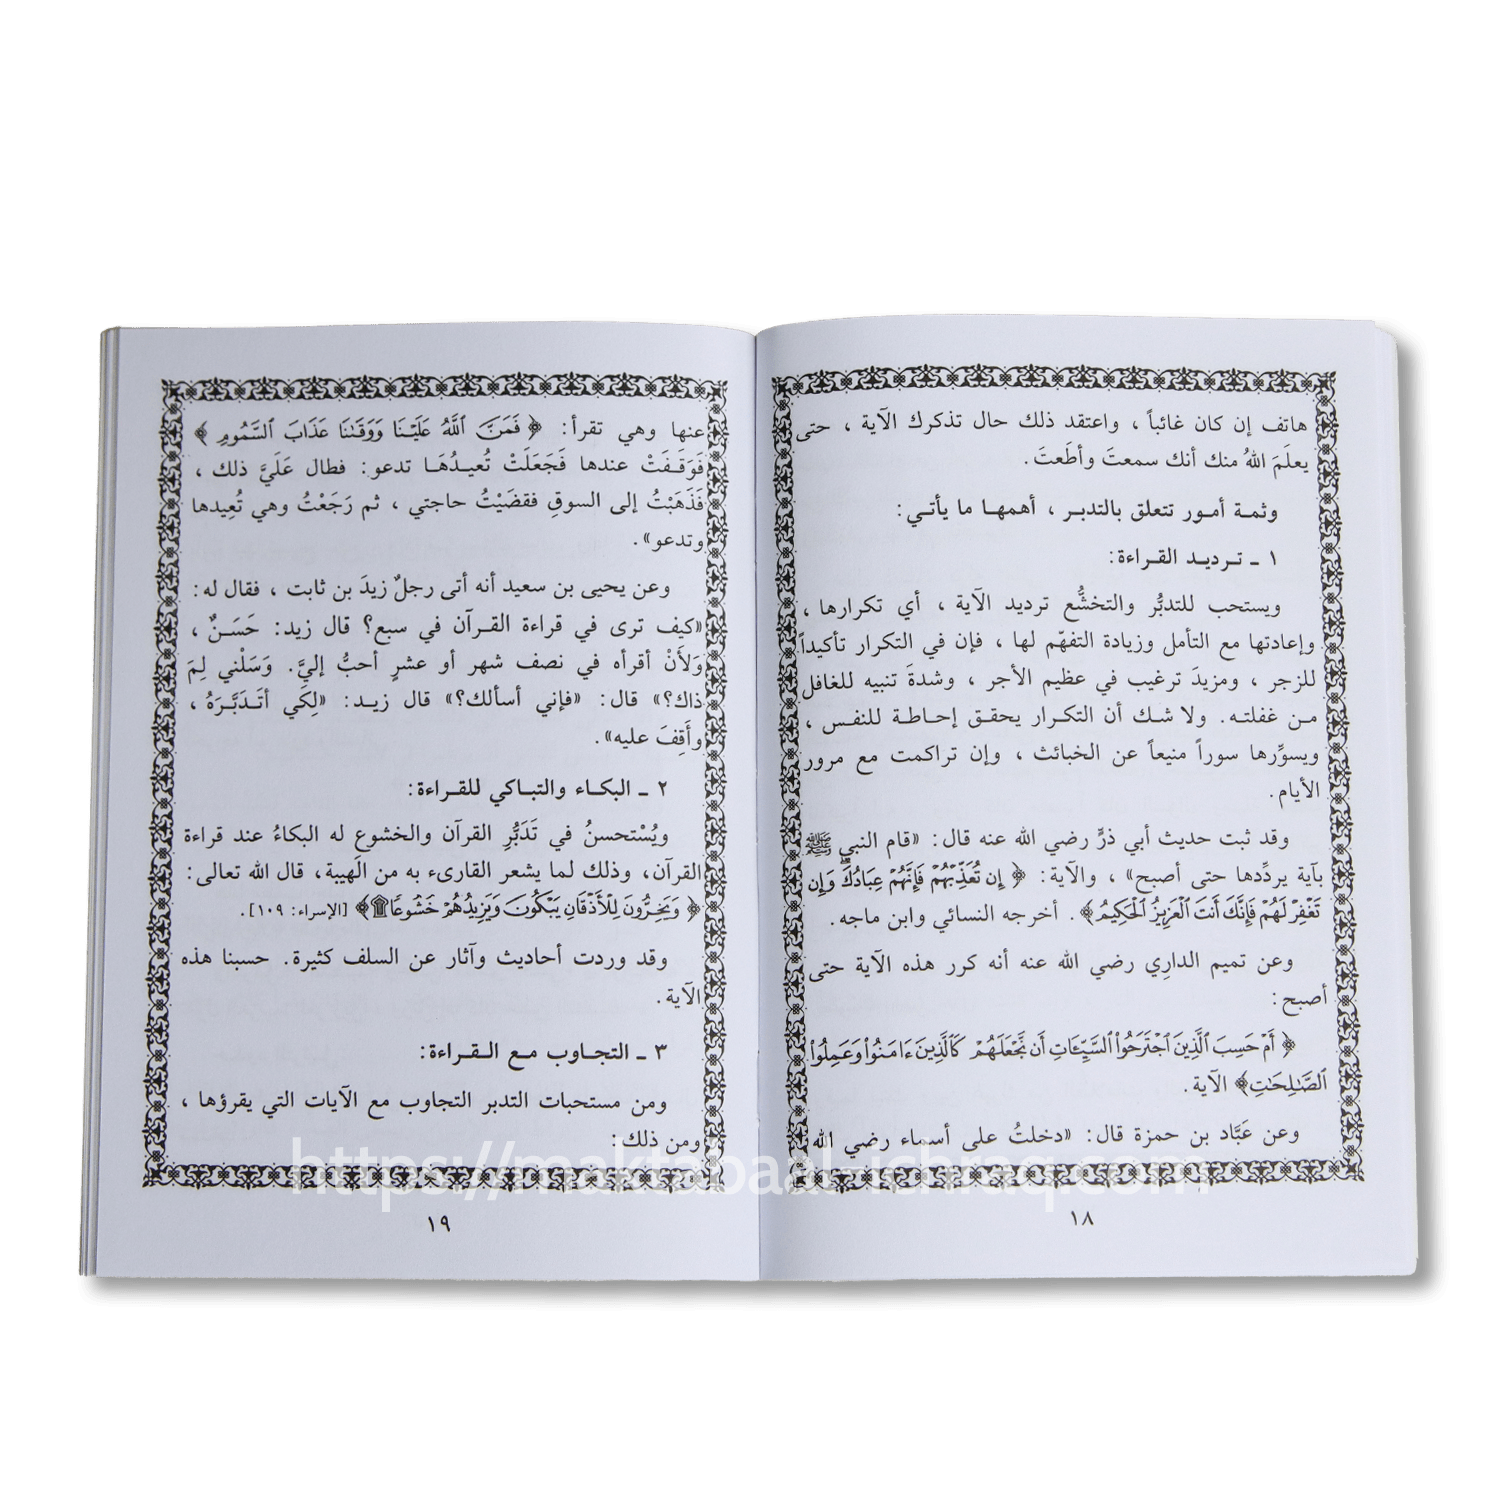 هاتف إن كان غائباً ، واعتقد ذلك حال تذكرك الآية ، حتى
يعلَمَ اللهُ منك أنك سمعتَ وأطَعتَ.
وثمـة أمـور تتعلق بالتدبـر ، أهمهـا ما يأتـي:
١ ـ تـرديـد القـراءة:
ويستحب للتدبُّر والتخشُّع ترديد الآية ، أي تكرارها ،
وإعادتها مع التأمل وزيادة التفهّم لها ، فإن في التكرار تأكيداً
للزجر ، ومزيدَ ترغيب في عظيم الأجر ، وشدةَ تنبيه للغافل
مـن غفلتـه. ولا شـك أن التكـرار يحقـق إحـاطـة للنفـس ،
ويسوِّرها سوراً منيعاً عن الخبائث ، وإن تراكمت مع مرور
الأيام.
وقد ثبت حديث أبي ذرٍّ رضي الله عنه قال: «قام النبي ﷺ
بآية يردِّدها حتى أصبح» ، والآية: ﴿ إِن تُعَذِّبْهُمْ فَإِنَّهُمْ عِبَادُكَ ۖ وَإِن
تَغْفِرْ لَهُمْ فَإِنَّكَ أَنتَ ٱلْعَزِيزُ ٱلْحَكِيمُ ﴾ . أخرجه النسائي وابن ماجه.
وعن تميم الدارِي رضي الله عنه أنه كرر هذه الآية حتى
أصبح:
﴿ أَمْ حَسِبَ ٱلَّذِينَ ٱجْتَرَحُوا۟ ٱلسَّيِّـَٔاتِ أَن نَّجْعَلَهُمْ كَٱلَّذِينَ ءَامَنُوا۟ وَعَمِلُوا۟
ٱلصَّـٰلِحَـٰتِ ﴾ الآية.
وعن عَبَّاد بن حمزة قال: «دخلتُ على أسماء رضي الله
١٨
عنها وهي تقرأ: ﴿ فَمَنَّ ٱللَّهُ عَلَيْنَا وَوَقَىٰنَا عَذَابَ ٱلسَّمُومِ ﴾
فَوَقَـفَتْ عندها فَجَعَلَتْ تُعيـدُهَـا تدعو: فطال عَلَيَّ ذلك ،
فَذَهَبْتُ إلى السوقِ فقضَيْتُ حاجتي ، ثم رَجَعْتُ وهي تُعِيدها
وتدعو».
وعن يحيى بن سعيد أنه أتى رجلٌ زيدَ بن ثابت ، فقال له:
«كيف ترى في قراءة القـرآن في سبع؟ قال زيد: حَسَـنٌ ،
وَلَأَنْ أقرأه في نصف شهر أو عشرٍ أحبُّ إليَّ. وَسَلْني لِمَ
ذاك؟» قال: «فإني أسألك؟» قال زيـد: «لِكَي أتَـدَبَّـرَهُ ،
وأَقِفَ عليه».
٢ ـ البكـاء والتبـاكي للقـراءة:
ويُسْتحسنُ في تَدَبُّرِ القرآن والخشوع له البكاءُ عند قراءة
القرآن، وذلك لما يشعر القارىء به من الهَيبة، قال الله تعالى:
﴿ وَيَخِرُّونَ لِلْأَذْقَانِ يَبْكُونَ وَيَزِيدُهُمْ خُشُوعًا ۩ ﴾ [الإسراء: ١٠٩].
وقد وردت أحاديث وآثار عن السلف كثيرة. حسبنا هذه
الآية.
٣ ـ التجاوب مـع القـراءة:
ومن مستحبات التدبر التجاوب مع الآيات التي يقرؤها ،
ومن ذلك:
١٩
https://maktabaal-ichraq.com